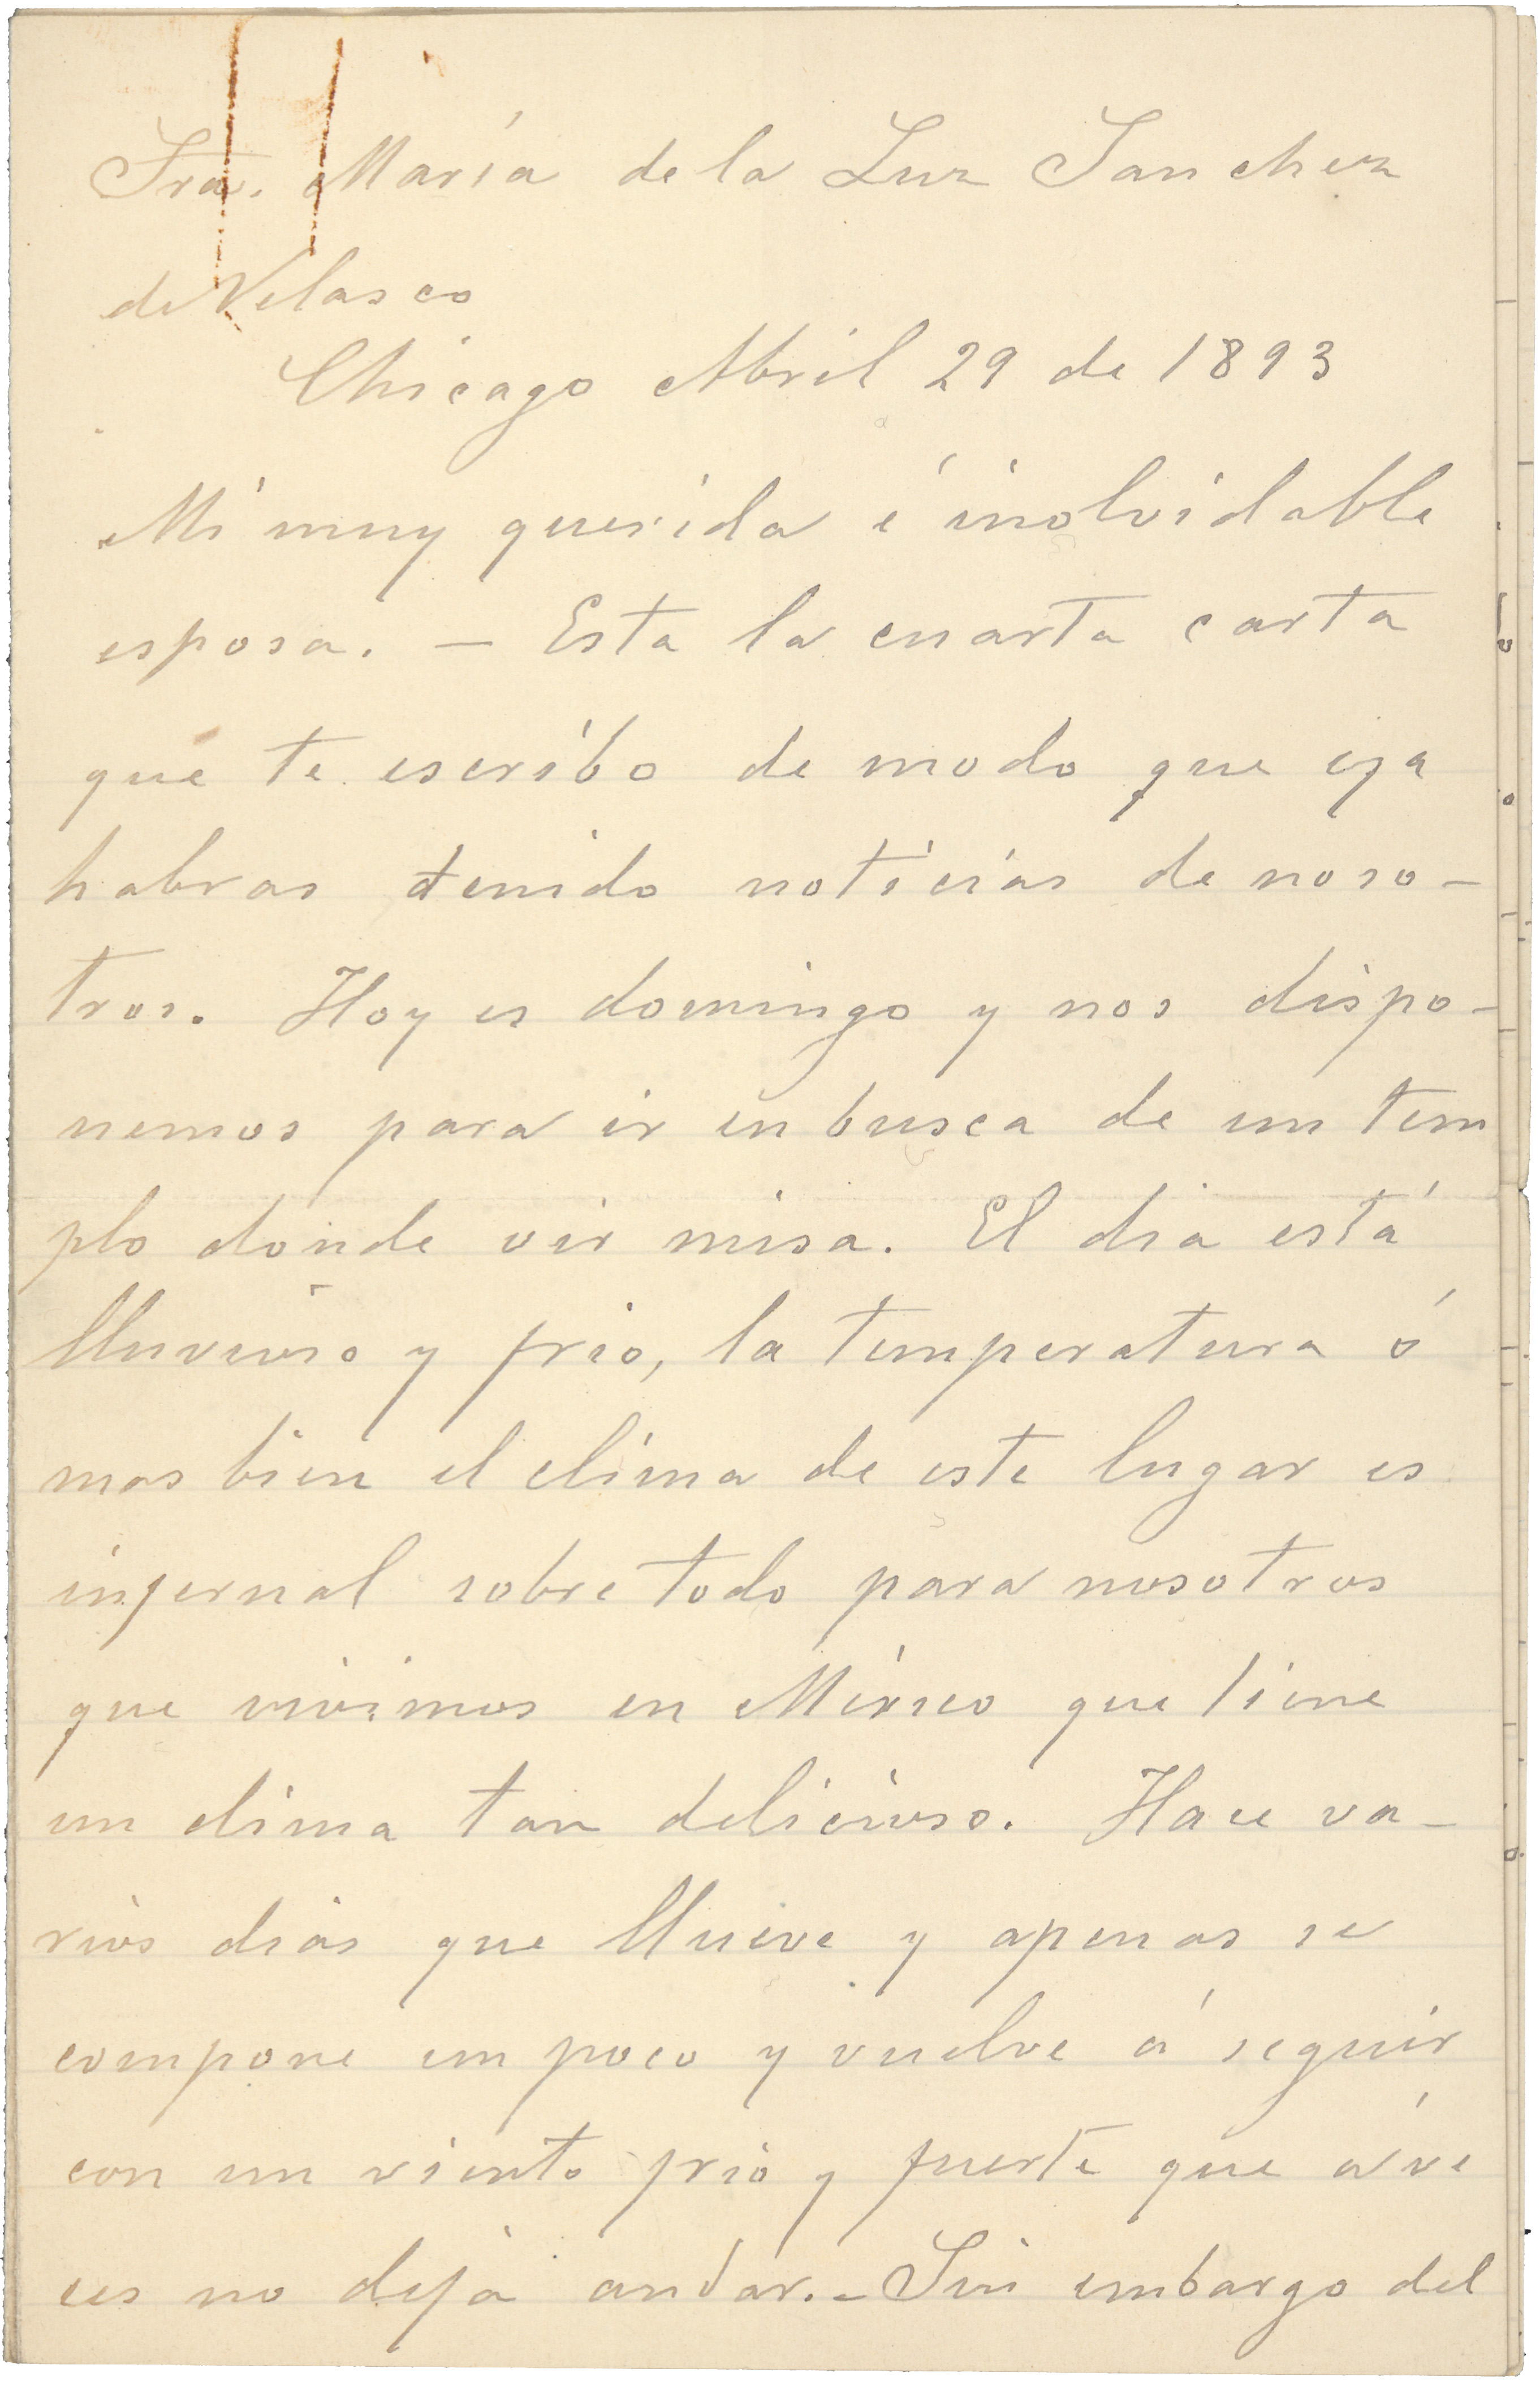 Sra. María de la Luz Sanchez
de Velasco
Chicago Abril 29 de 1893
Mi muy querida é inolvidable
esposa. — Esta la cuarta carta
que te escribo de modo que ya
habras tenido noticias de noso-
tros. Hoy es domingo y nos dispo-
nemos para ir en busca de un tem
plo donde oir misa. El dia está
lluvioso y frio, la temperatura ó
mas bien el clima de este lugar es
infernal sobre todo para nosotros
que vivimos en México que tiene
un clima tan delicioso. Hace va-
rios dias que llueve y apenas se
compone un poco y vuelve á seguir
con un viento frio y fuerte que á ve
ces no deja andar. - Sin embargo del